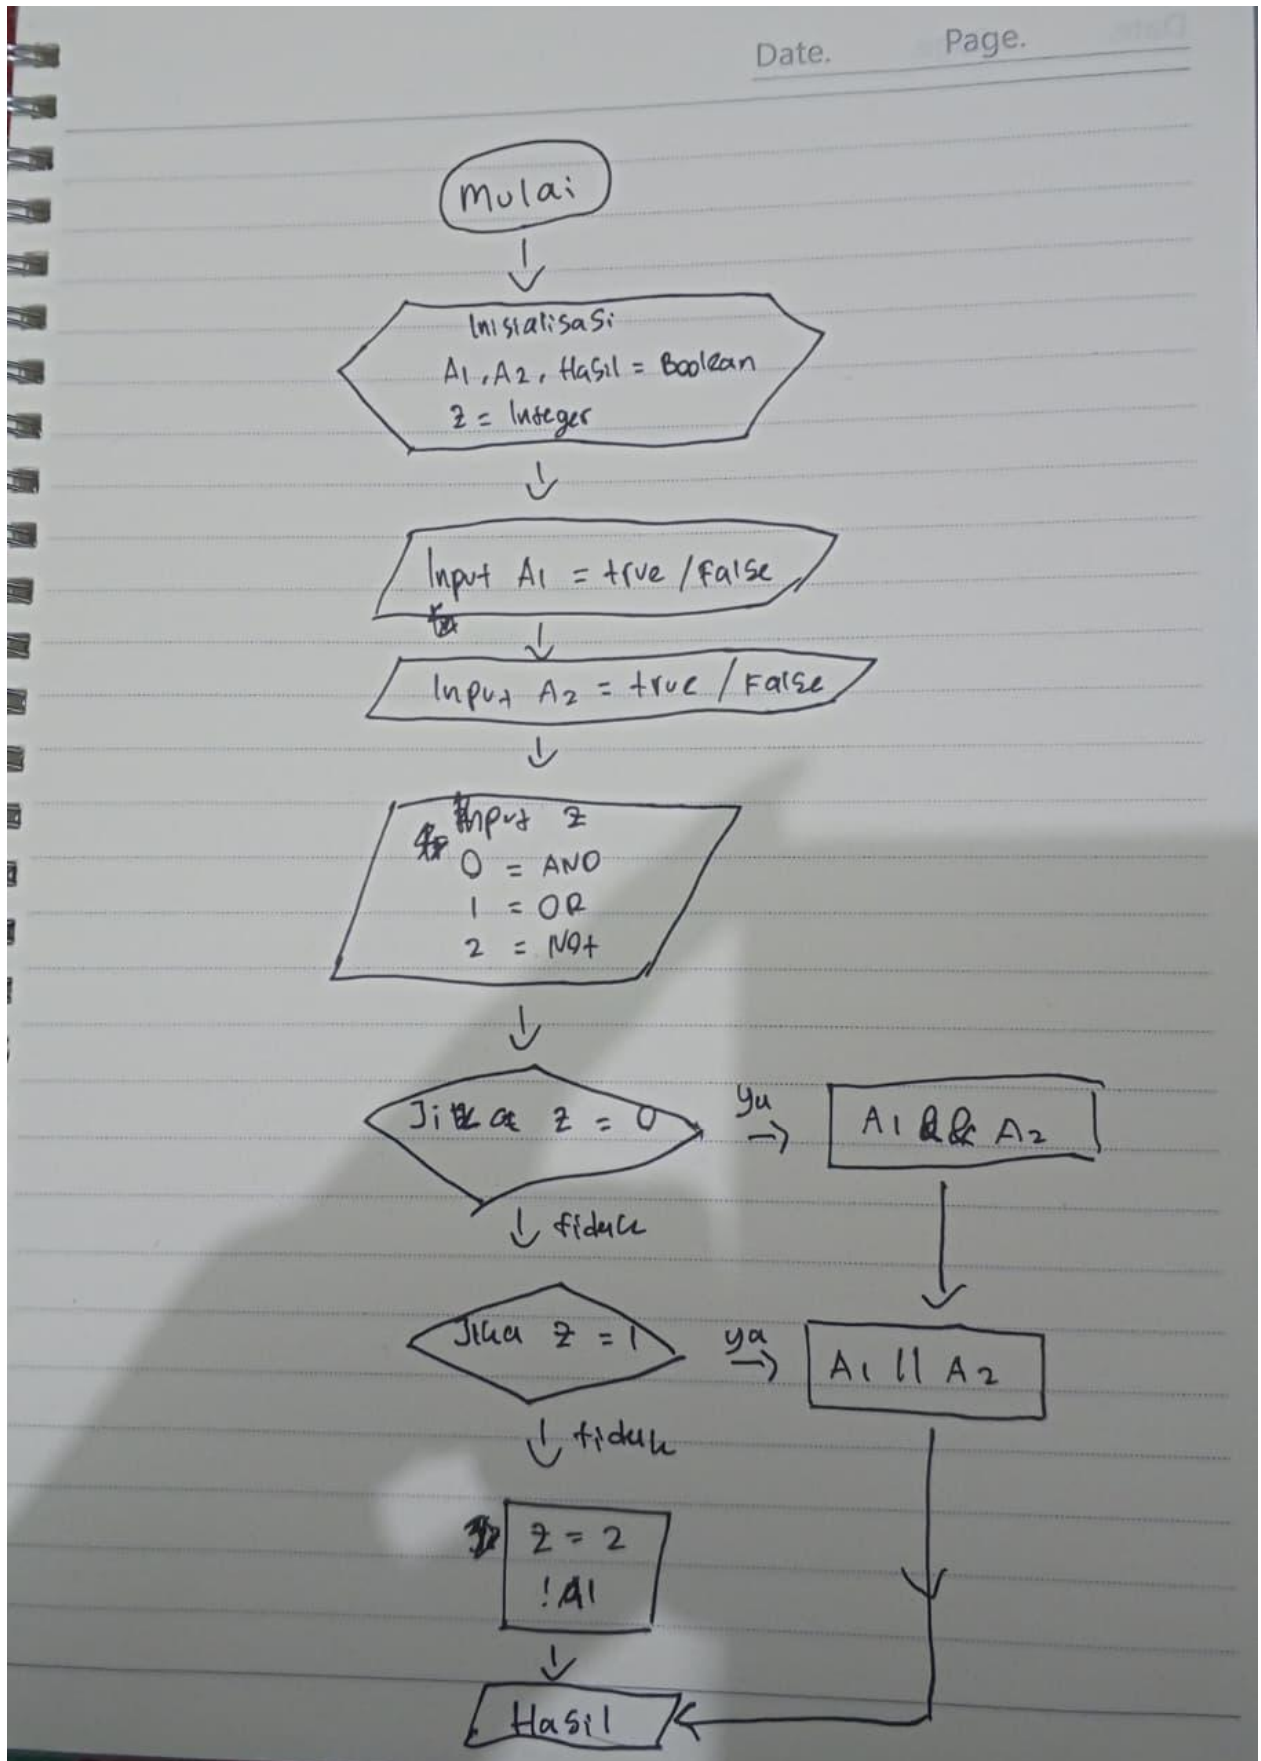 Date. Page.
Mulai
Inisialisasi
A1, A2, Hasil = Boolean
Z = Integer
Input A1 = true / False
Input A2 = true / False
Input Z
0 = AND
1 = OR
2 = NOt
Jika Z = 0
ya
A1 && A2
tidak
Jika Z = 1
ya
A1 || A2
tidak
Z = 2
!A1
Hasil